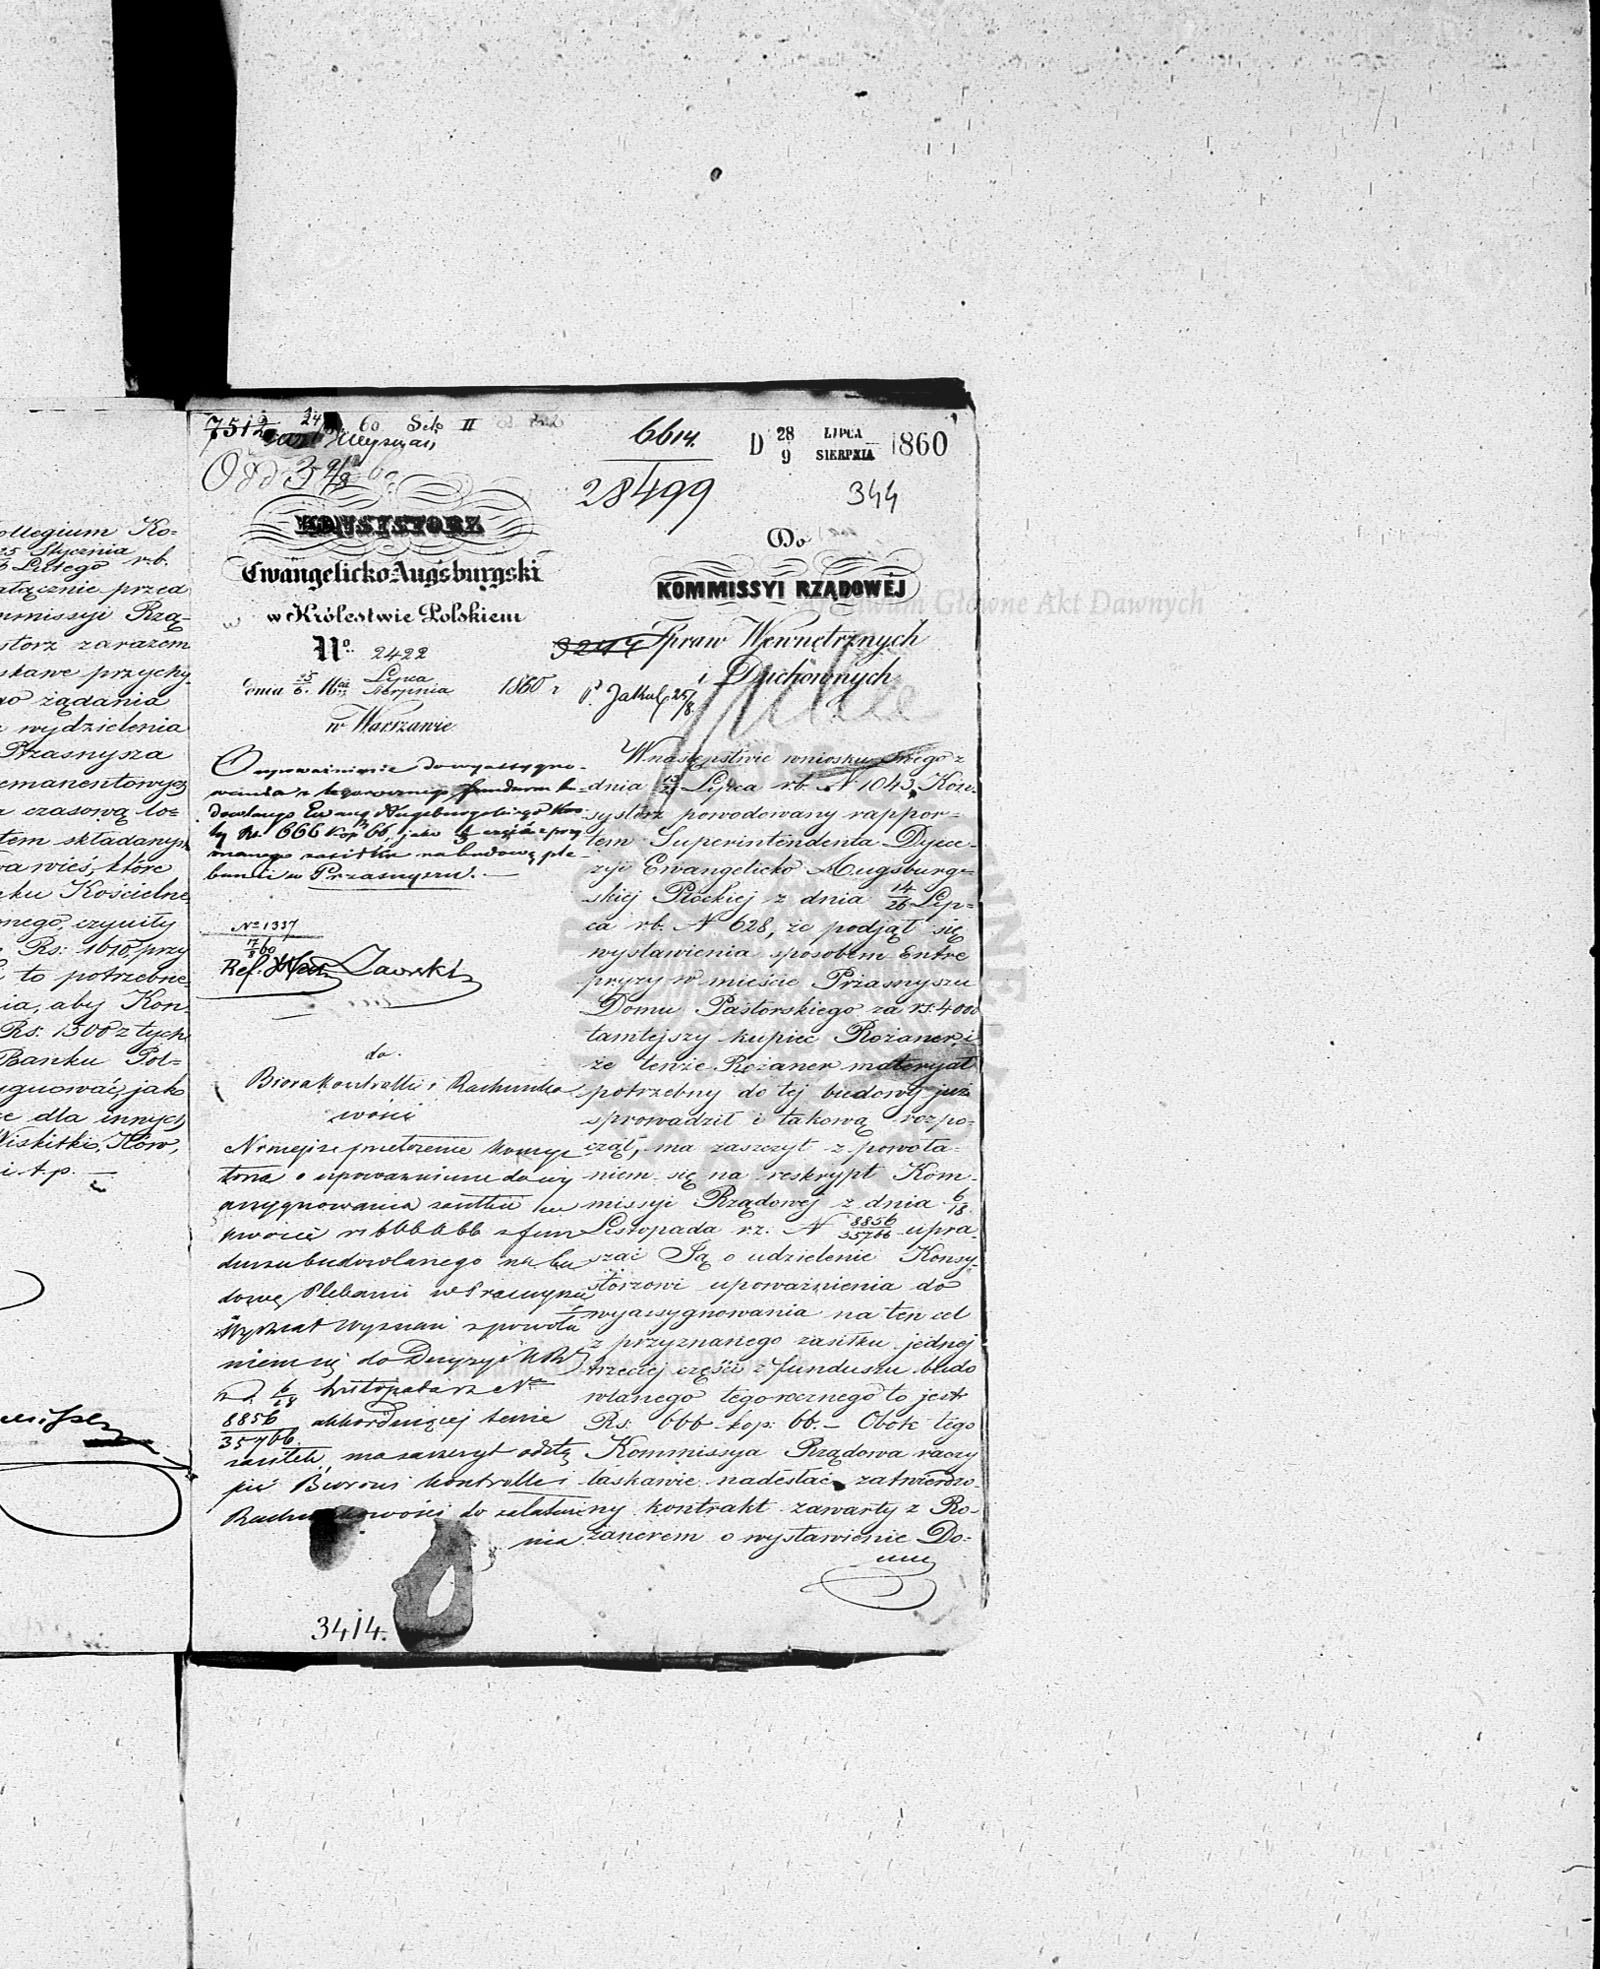 ollegium Ko-
25 Stycznia
6 Lutego r.b.
ałącznie przed
mmissyi Rzą-
storz zarazem
skawe przychy-
go żądania
wydzielenia
Przasnysza
emanentowych
a czasową lo-
tem składanym
wa wieś, które
nku Kościelne
onego, czyniły
Rs: 1610, przy
to potrzebne
nia, aby Kon-
Rs: 1500 z tych
Banku Pol-
ygnować, jak
że dla innych
Wiskitki, Iłów,
i t.p. —
7512 24 60 Sek II
Odd 3
KONSYSTORZ
Ewangelicko-Augsburgski
w Królestwie Polskiem
No. 2422
dnia 25/6. Lipca/Sierpnia 1860 r
w Warszawie
O upoważnienie do wyassygno-
wania z tegorocznego funduszu bu-
dowlanego Ewang Augsburgskiego kwo-
ty Rs. 666 kop 66, jako 1/3 części z przy
znanego zasiłku na budowę ple-
banii w Przasnyszu. —
No 1337
7/8 60
Ref. Zawski
do.
Biura Kontrolli i Rachunko
wości
Niniejsze przełożenie Konsys
torza o upoważnienie do wy
assygnowania zasiłku w
kwocie rs 666 k 66 z fun
duszu budowlanego na bu
dowę Plebanii w Przasnyszu
Wydział Wyznań z powoła
niem się do Decyzyi KR
z d. 6/18 Listopada rz No
8856/35766 akkordującej tenie
zasiłek, ma zaszczyt odstą
pić Biurowi Kontrolli i
Rachunkowości do załatwie
nia
3414.
6614.
28499
D 28 LIPCA/9 SIERPNIA 1860
344
Do
KOMMISSYI RZĄDOWEJ
Spraw Wewnętrznych
i Duchownych
25/8.
W następstwie wniosku swego z
dnia Lipca rb. N 1043, Kon-
systorz powodowany rappor-
tem Superintendenta Dyece-
zyi Ewangelicko Augsburg-
skiej Płockiej z dnia 14/26 Lip-
ca rb. N 628, że podjął się
wystawienia sposobem Entre
pryzy w mieście Przasnyszu
Domu Pastorskiego za rs. 4000
tamtejszy kupiec Rożaner, i
że tenże Rożaner materyał
potrzebny do tej budowy już
sprowadził i takową rozpo-
czął, ma zaszczyt z powoła-
niem się na reskrypt Kom-
missyi Rządowej z dnia 6/18.
Listopada r.z. N 8856/35766 upra-
szać Ją o udzielenie Konsy-
storzowi upoważnienia do
wyassygnowania na ten cel
z przyznanego zasiłku jednej
trzeciej części z funduszu budo
wlanego tegorocznego to jest
Rs. 666 kop: 66. — Obok tego
Kommissya Rządowa raczy
łaskawie nadesłać zatwierdzo-
ny kontrakt zawarty z Ro-
żanerem o wystawienie Do-
mu
Archiwum Główne Akt Dawnych